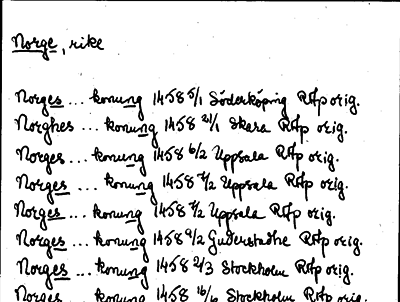 Norge, rike
Norges ... konung 1458 5/1 Söderköping RAp orig.
Norghes ... konung 1458 21/1 Skara RAp orig.
Norges ... konung 1458 6/2 Uppsala RAp orig.
Norges ... konung 1458 7/2 Uppsala RAp orig.
Norges ... konung 1458 7/2 Uppsala RAp orig.
Norges ... konung 1458 9/2 RAp orig.
Norges ... konung 1458 2/3 Stockholm RAp orig.
Norges ... konung 1458 16/6 Stockholm RAp orig.